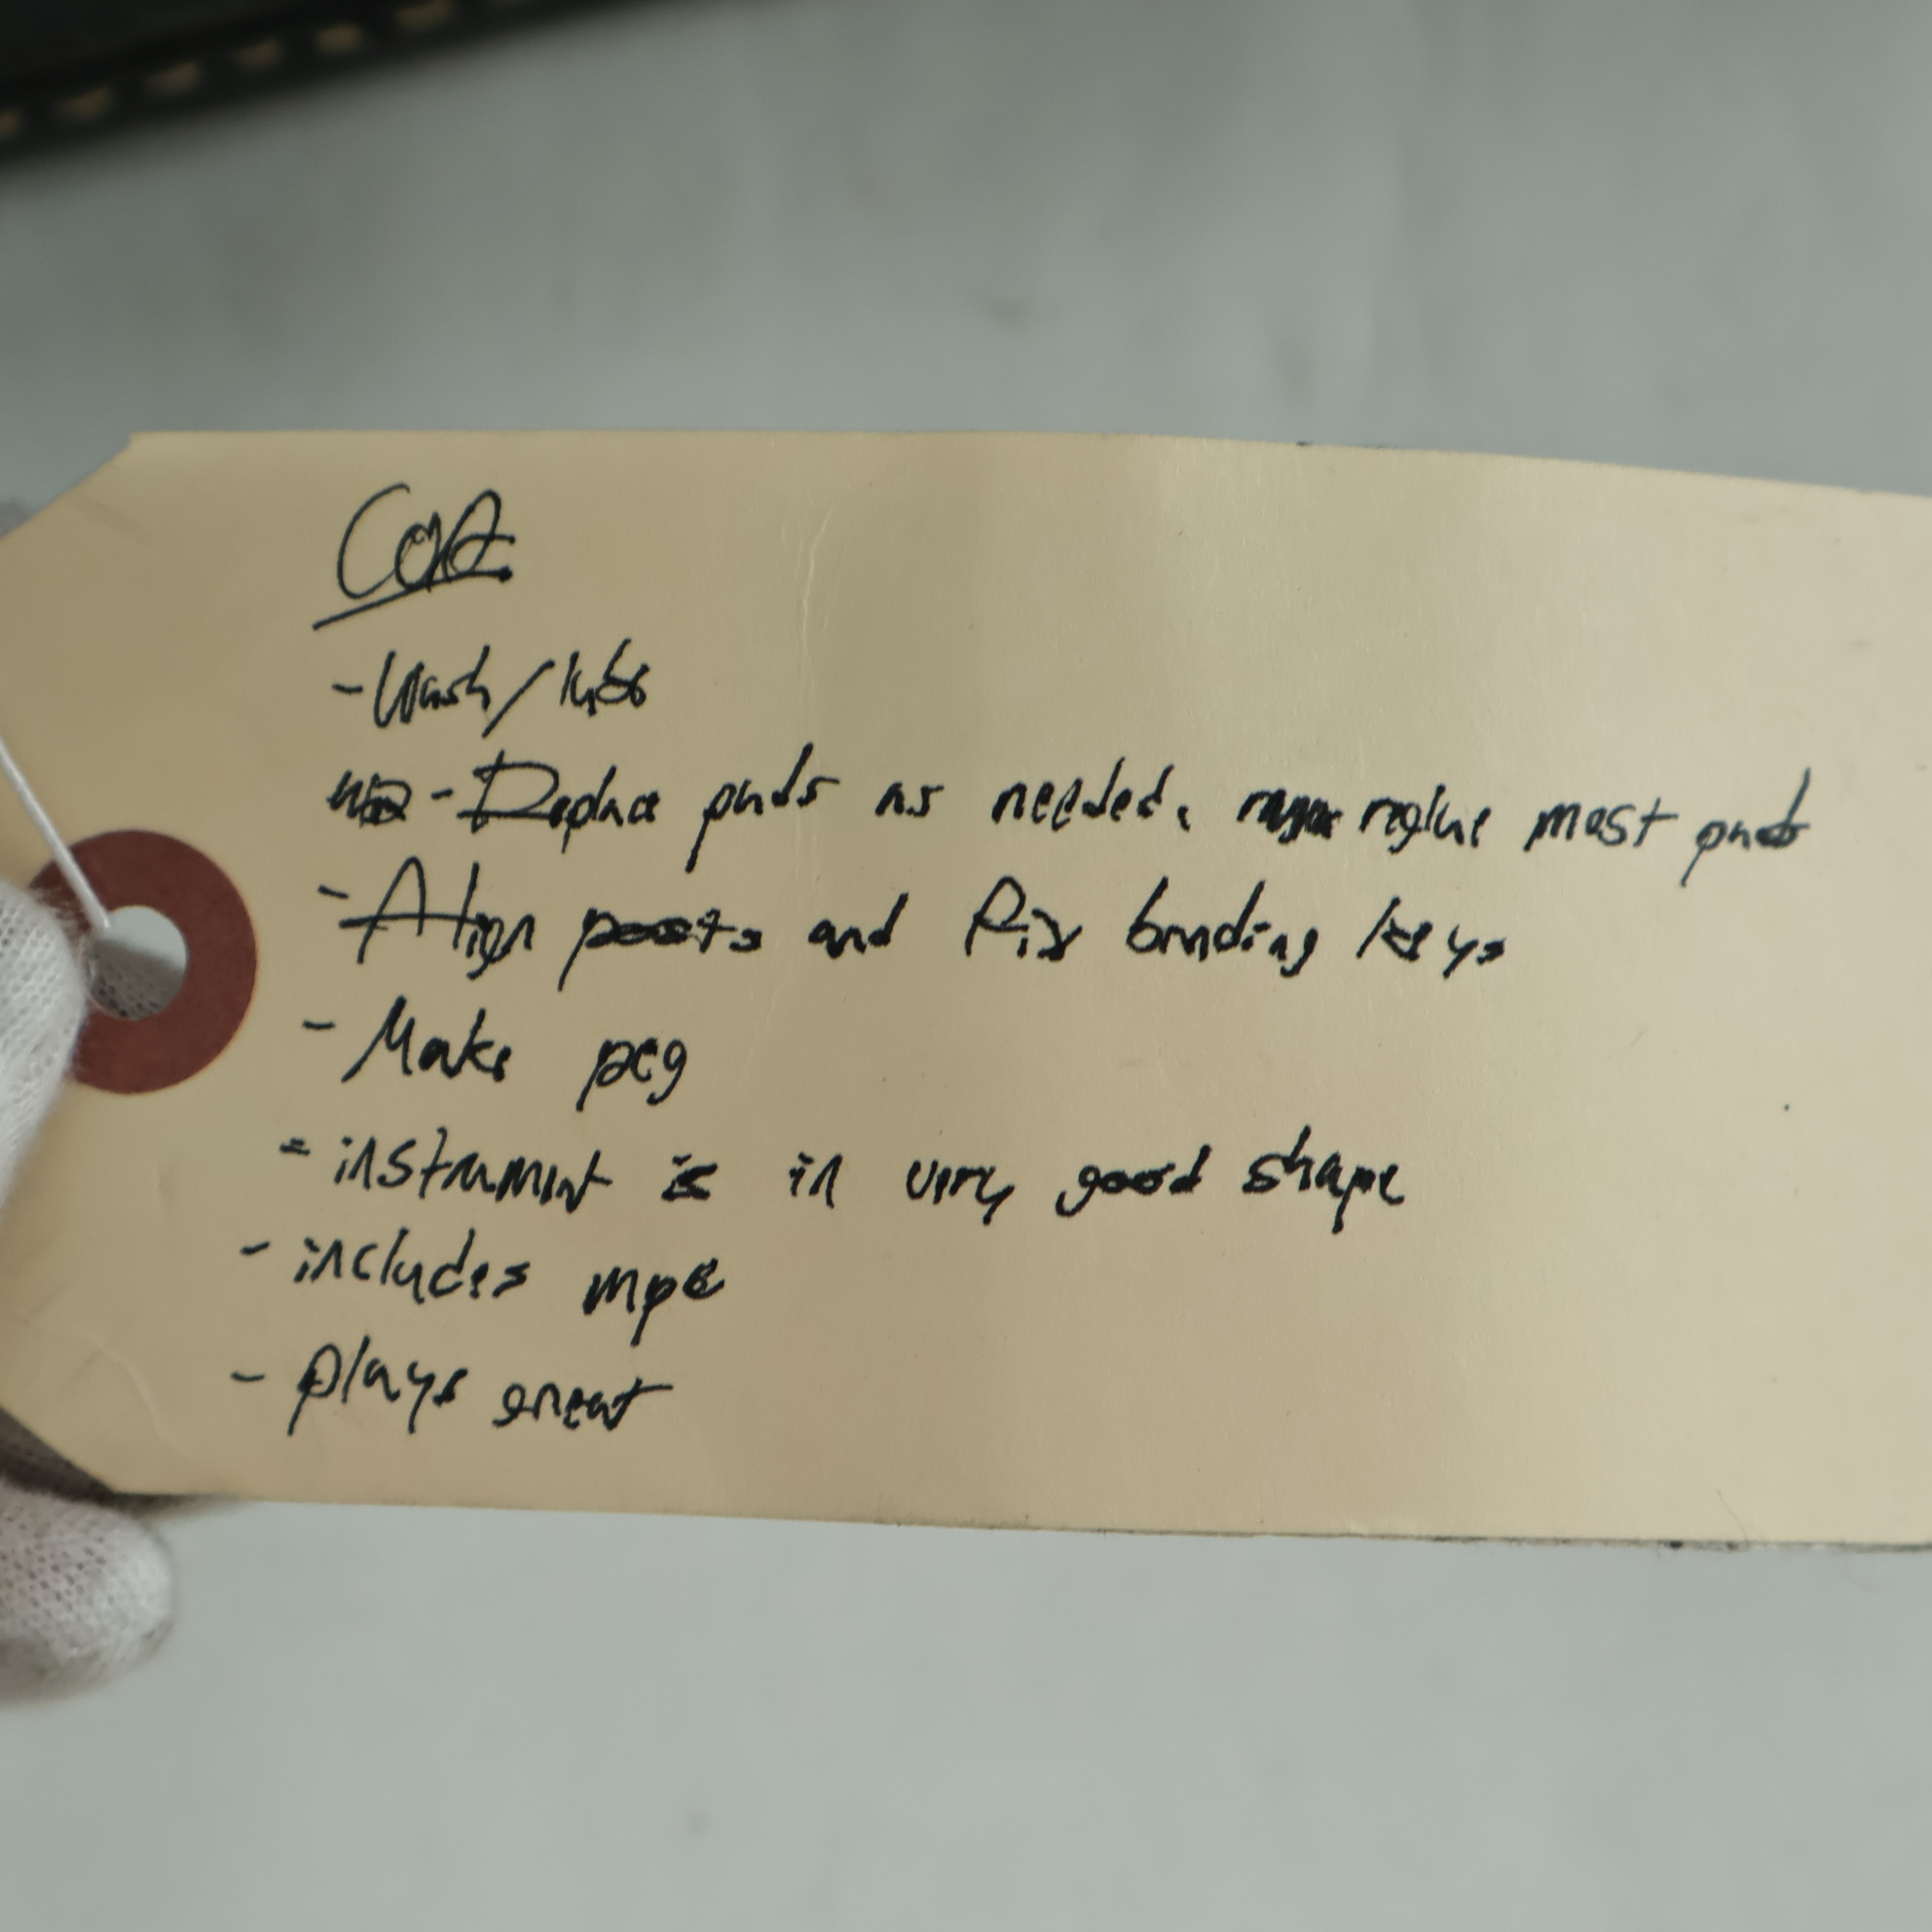 COA
- Wash/lube
- Replace pads as needed, reglue most pads
- Align posts and fix binding keys
- Make peg
- instrument is in very good shape
- includes mpc
- Plays great